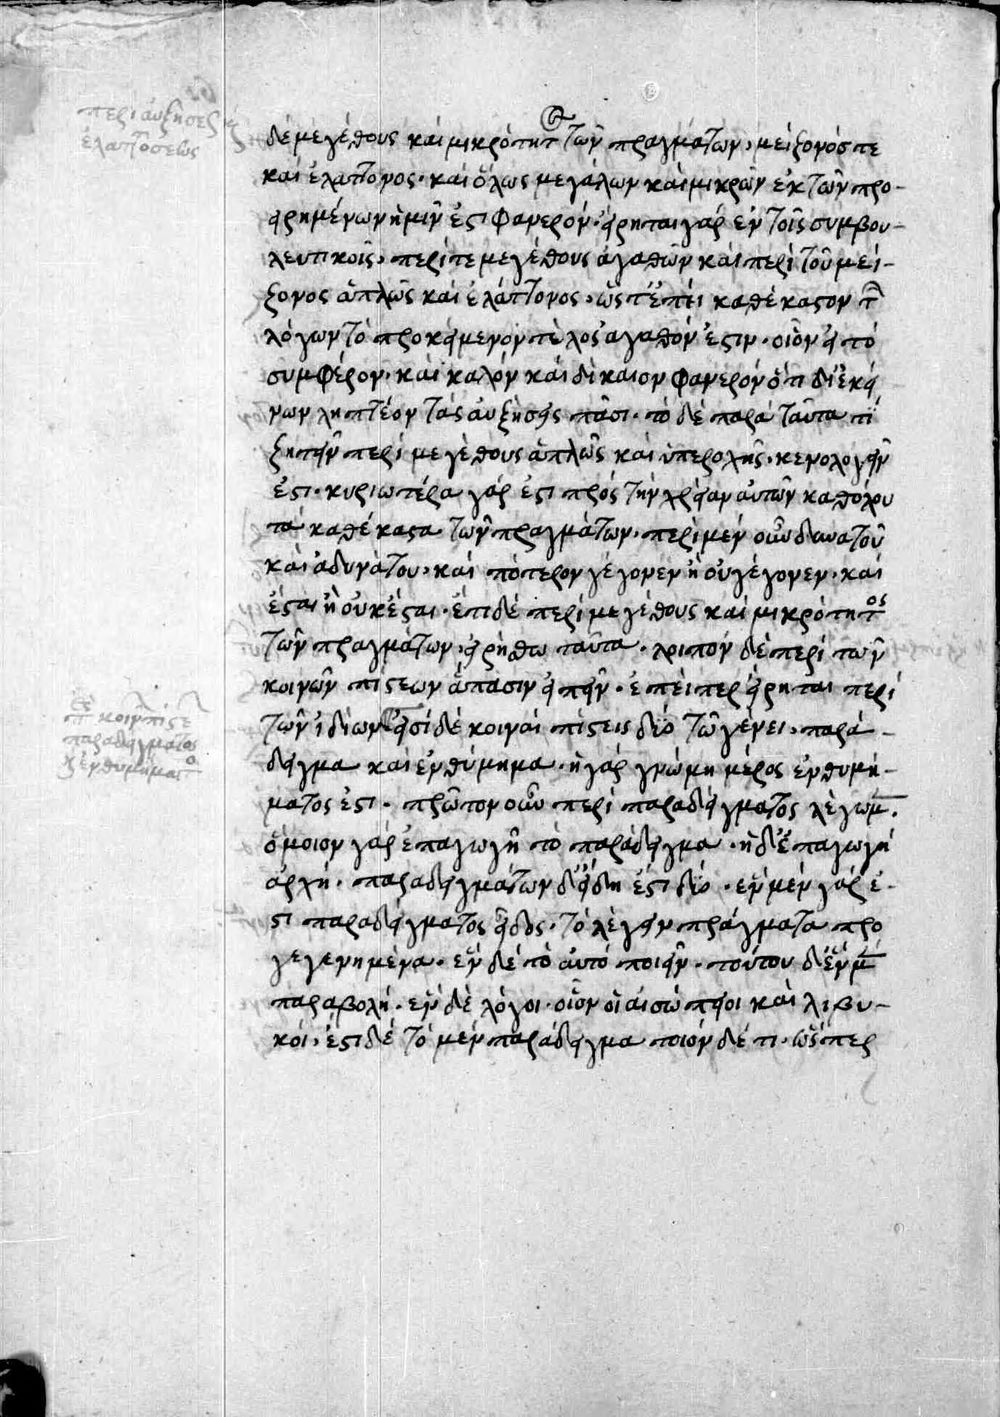 περι αυξήσεως κ
ἐλαττώσεως
δὲ μεγέθους καὶ μικρότητος τῶν πραγμάτων, μείζονός τε
καὶ ἐλάττονος· καὶ ὅλως μεγάλων καὶ μικρῶν ἐκ τῶν προ-
ειρημένων ἡμῖν ἐστι φανερόν· εἴρηται γὰρ ἐν τοῖς συμβου-
λευτικοῖς, περί τε μεγέθους ἀγαθῶν καὶ περὶ τοῦ μεί-
ζονος ἁπλῶς καὶ ἐλάττονος· ὥστ' ἐπεὶ καθ' ἕκαστον τῶν
λόγων τὸ προκείμενον τέλος ἀγαθόν ἐστιν· οἷον εἰ τὸ
συμφέρον· καὶ καλὸν καὶ δίκαιον φανερὸν ὅτι δι' ἐκεί
νων ληπτέον τὰς αὐξήσεις πᾶσι· τὸ δὲ παρὰ ταῦτα τί
ζητεῖν περὶ μεγέθους ἁπλῶς καὶ ὑπεροχῆς· κενολογεῖν
ἐστι· κυριωτέρα γάρ ἐστι πρὸς τὴν χρείαν αὐτῶν καθόλου
τὰ καθέκαστα τῶν πραγμάτων· περὶ μὲν οὖν δυνατοῦ
καὶ ἀδυνάτου· καὶ πότερον γέγονεν ἢ οὐ γέγονεν· καὶ
ἔσται ἢ οὐκ ἔσται· ἔτι δὲ περὶ μεγέθους καὶ μικρότητος
τῶν πραγμάτων, εἰρήσθω ταῦτα· λοιπὸν δὲ περὶ τῶν
κοινῶν πίστεων ἅπασιν εἰπεῖν· ἐπείπερ εἴρηται περὶ
τῶν ἰδίων· εἰσὶ δὲ κοιναὶ πίστεις δύο τῷ γένει· παρά-
δειγμα καὶ ἐνθύμημα· ἡ γὰρ γνώμη μέρος ἐνθυμή-
ματός ἐστι· πρῶτον οὖν περὶ παραδείγματος λέγωμεν·
ὅμοιον γὰρ ἐπαγωγῇ τὸ παράδειγμα· ἡ δ' ἐπαγωγὴ
ἀρχή· παραδειγμάτων δ' εἴδη ἐστὶ δύο· ἓν μὲν γάρ ἐ-
στι παραδείγματος εἶδος· τὸ λέγειν πράγματα προ
γεγενημένα· ἓν δὲ τὸ αὐτὸ ποιεῖν· τούτου δ' ἓν μὲν
παραβολή· ἓν δὲ λόγοι· οἷον οἱ αἰσώπειοι καὶ λιβυ-
κοί· ἔστι δὲ τὸ μὲν παράδειγμα ποιόν δέ τι· ὥσπερ
κοιν πίστε
παραδείγματος
κ ἐνθυμήματος